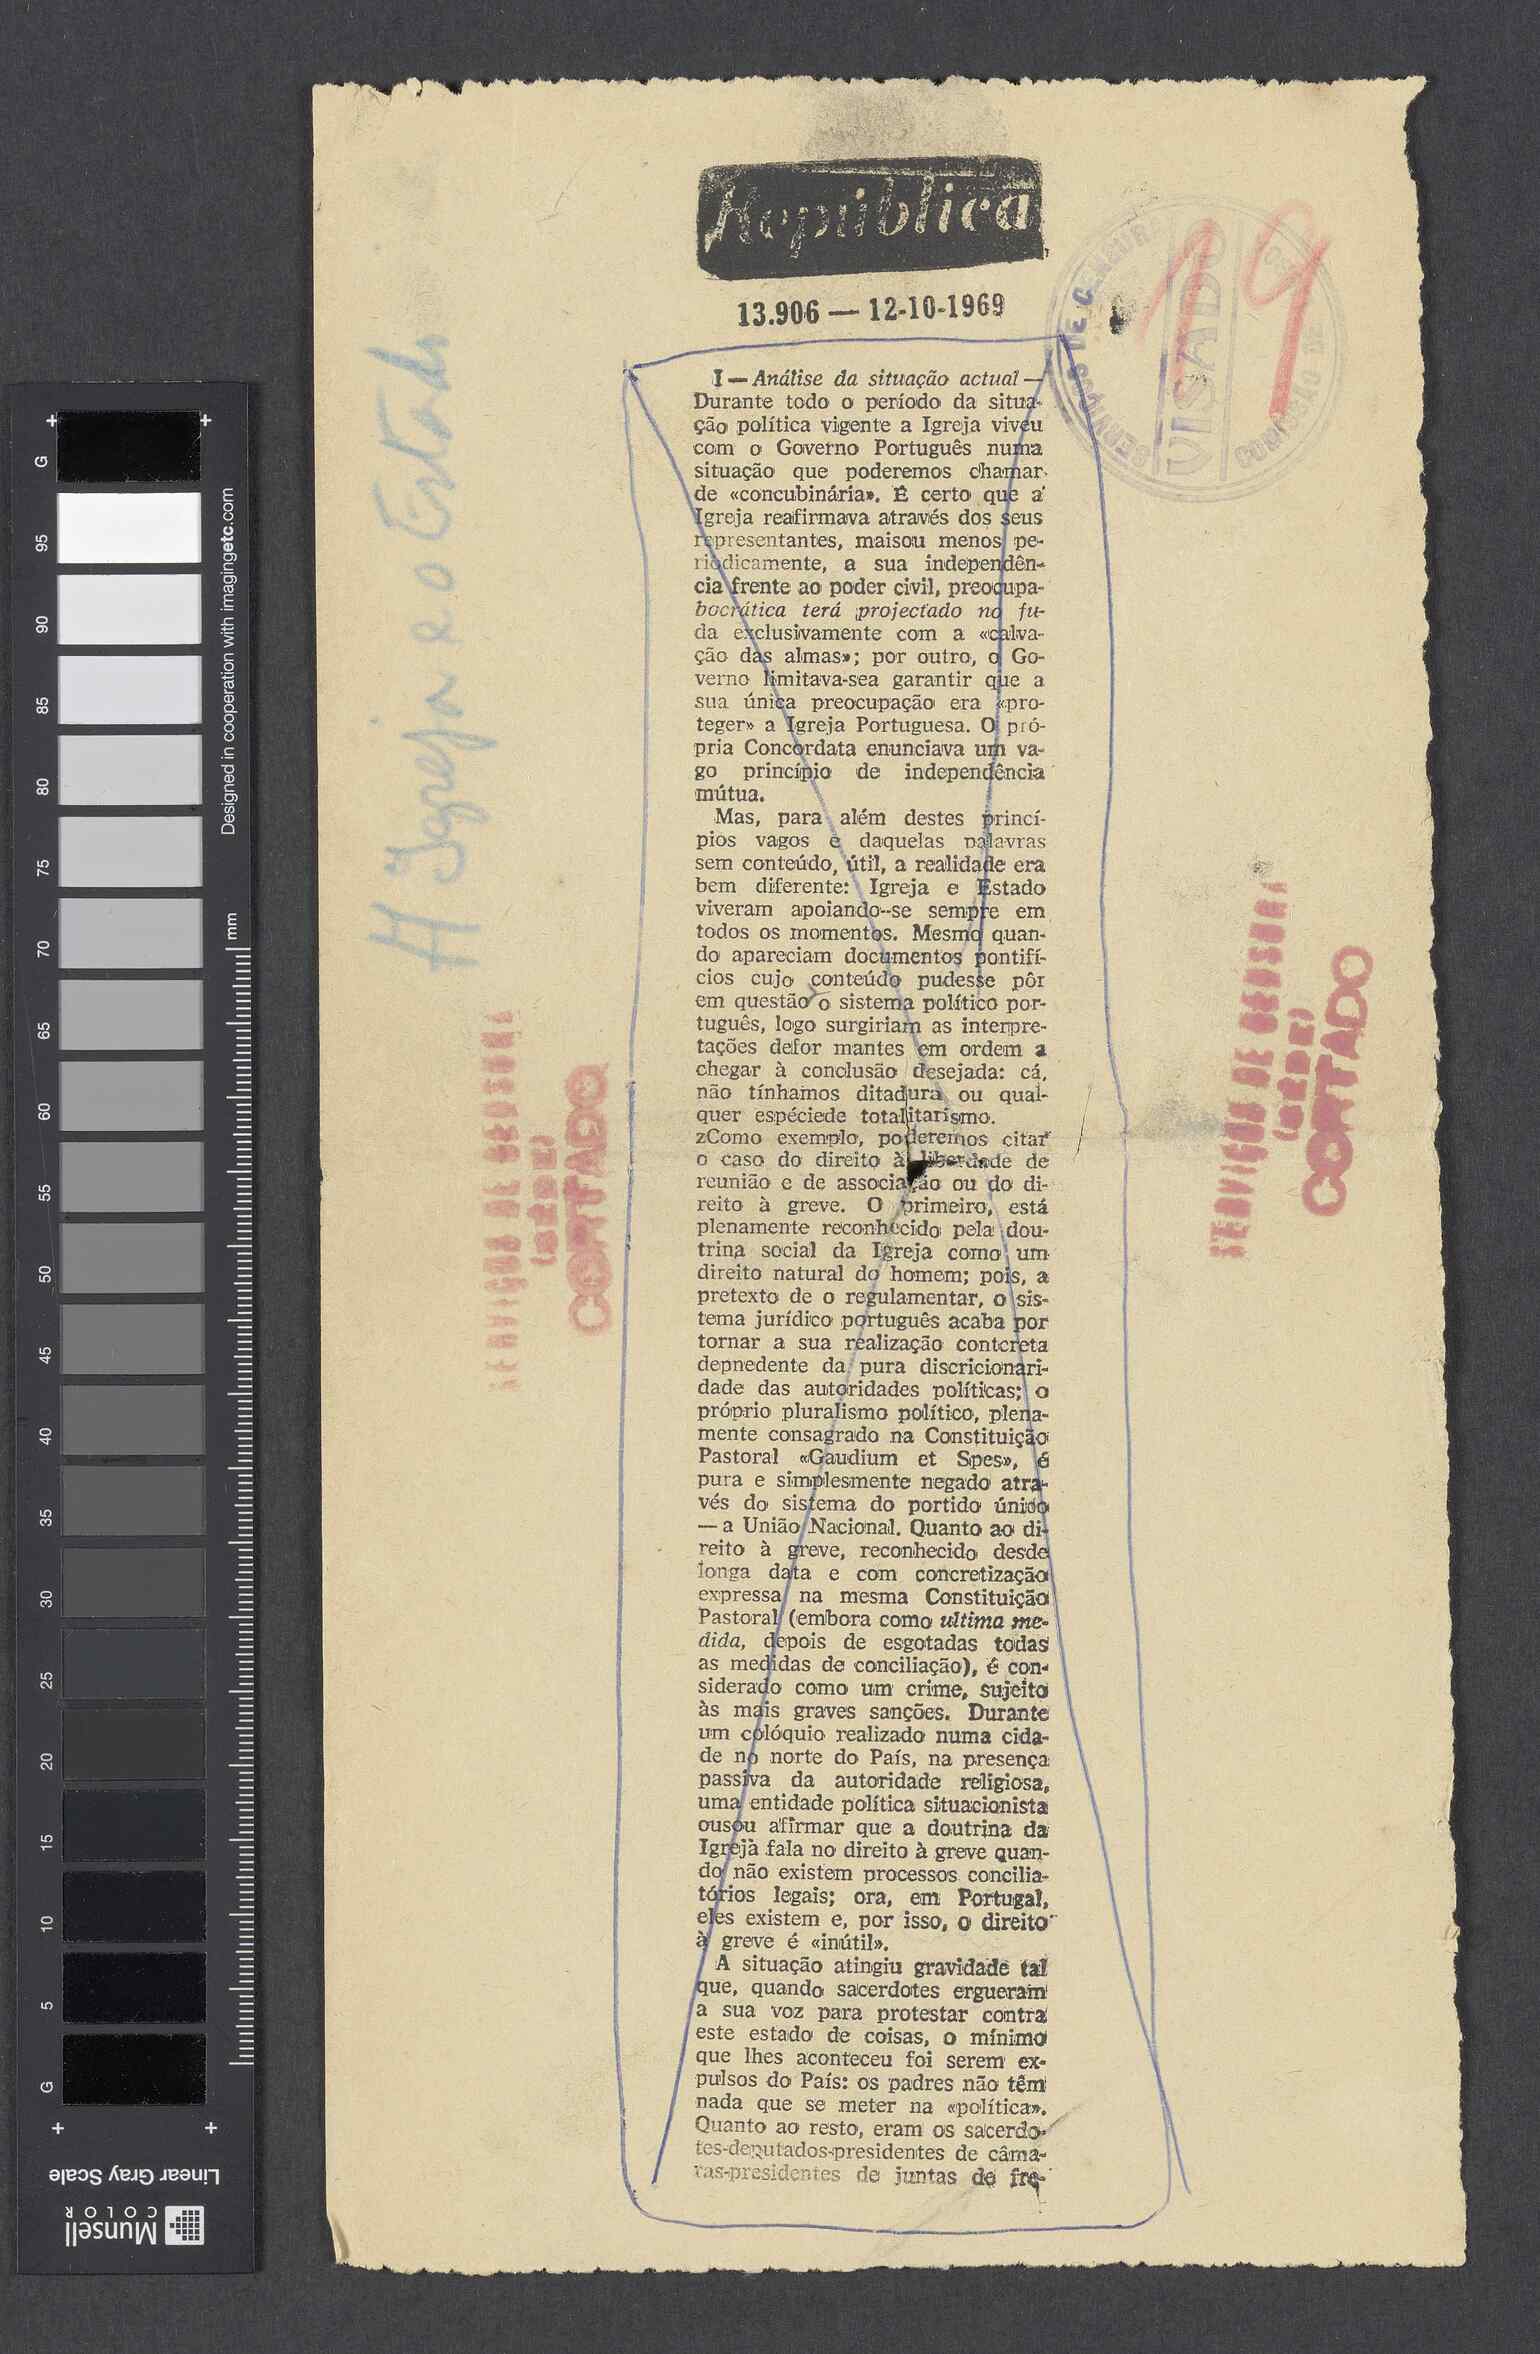 República
13.906 — 12-10-1969
19
SERVIÇOS DE CENSURA
VISADO
COMISSÃO DE
A Igreja e o Estado
I — Análise da situação actual —
Durante todo o período da situa-
ção política vigente a Igreja viveu
com o Governo Português numa
situação que poderemos chamar
de «concubinária». É certo que a
Igreja reafirmava através dos seus
representantes, maisou menos pe-
riòdicamente, a sua independên-
cia frente ao poder civil, preocupa-
bocrática terá projectado no fu-
da exclusivamente com a «calva-
ção das almas»; por outro, o Go-
verno limitava-sea garantir que a
sua única preocupação era «pro-
teger» a Igreja Portuguesa. O pró-
pria Concordata enunciava um va-
go princípio de independência
mútua.
Mas, para além destes princí-
pios vagos e daquelas palavras
sem conteúdo, útil, a realidade era
bem diferente: Igreja e Estado
viveram apoiando--se sempre em
todos os momentos. Mesmo quan-
do apareciam documentos pontifí-
cios cujo conteúdo pudesse pôr
em questão o sistema político por-
tuguês, logo surgiriam as interpre-
tações defor mantes em ordem a
chegar à conclusão desejada: cá,
não tínhamos ditadura ou qual-
quer espéciede totalitarismo.
zComo exemplo, poderemos citar
o caso do direito à liberdade de
reunião e de associação ou do di-
reito à greve. O primeiro, está
plenamente reconhecido pela dou-
trina social da Igreja como um
direito natural do homem; pois, a
pretexto de o regulamentar, o sis-
tema jurídico português acaba por
tornar a sua realização contcreta
depnedente da pura discricionari-
dade das autoridades políticas; o
próprio pluralismo político, plena-
mente consagrado na Constituição
Pastoral «Gaudium et Spes», é
pura e simplesmente negado atra-
vés do sistema do partido único
— a União Nacional. Quanto ao di-
reito à greve, reconhecido desde
longa data e com concretização
expressa na mesma Constituição
Pastoral (embora como ultima me-
dida, depois de esgotadas todas
as medidas de conciliação), é con-
siderado como um crime, sujeito
às mais graves sanções. Durante
um colóquio realizado numa cida-
de no norte do País, na presença
passiva da autoridade religiosa,
uma entidade política situacionista
ousou afirmar que a doutrina da
Igreja fala no direito à greve quan-
do não existem processos concilia-
tórios legais; ora, em Portugal,
eles existem e, por isso, o direito
à greve é «inútil».
A situação atingiu gravidade tal
que, quando sacerdotes ergueram
a sua voz para protestar contra
este estado de coisas, o mínimo
que lhes aconteceu foi serem ex-
pulsos do País: os padres não têm
nada que se meter na «política».
Quanto ao resto, eram os sacerdo-
tes-deputados-presidentes de câma-
ras-presidentes de juntas de fre-
SERVIÇOS DE CENSURA
(SEDE)
CORTADO
SERVIÇOS DE CENSURA
(SEDE)
CORTADO
G
95
90
85
80
75
70
65
60
55
50
45
40
35
30
25
20
15
10
5
G
mm
Designed in cooperation with imagingetc.com
Linear Gray Scale
Munsell
COLOR